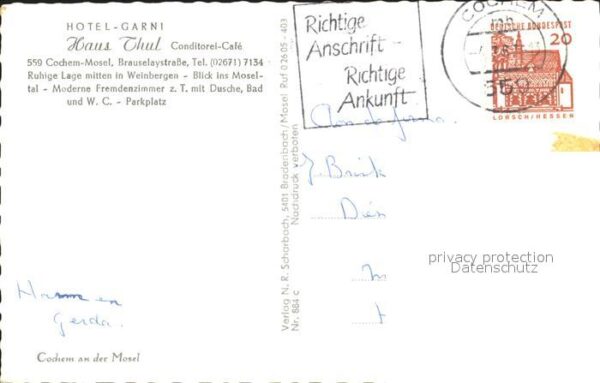 HOTEL-GARNI
Haus Thul Conditorei-Café
559 Cochem-Mosel, Brauselaystraße, Tel. (02671) 7134
Ruhige Lage mitten in Weinbergen - Blick ins Mosel-
tal - Moderne Fremdenzimmer z. T. mit Dusche, Bad
und W. C. - Parkplatz
Gerda.
Cochem an der Mosel
Verlag N. R. Scharbach, 5401 Bradenbach/Mosel Ruf 02605-403
Nr. 884 c Nachdruck verboten
Richtige
Anschrift -
Richtige
Ankunft
COCHEM
DEUTSCHE BUNDESPOST
20
LORSCH/HESSEN
privacy protection
Datenschutz